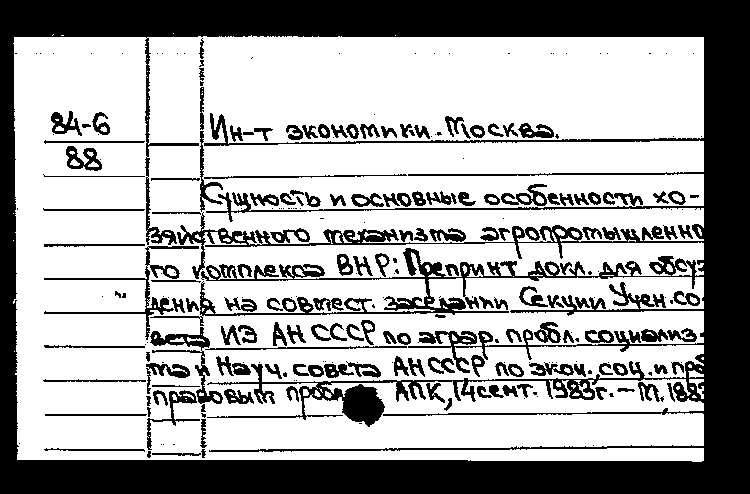 84-6
88
Ин-т экономики. Москва.
Сущность и основные особенности хо-
зяйственного механизма агропромышленно
го комплекса ВНР: Препринт докл. для обсуж
дения на совмест. заседании Секции Учен. со-
вета ИЭ АН СССР по аграр. пробл. социализ-
ма и Науч. совета АН СССР по экон., соц. и
правовым АПК, 14 сент. 1983г. – М., 1983